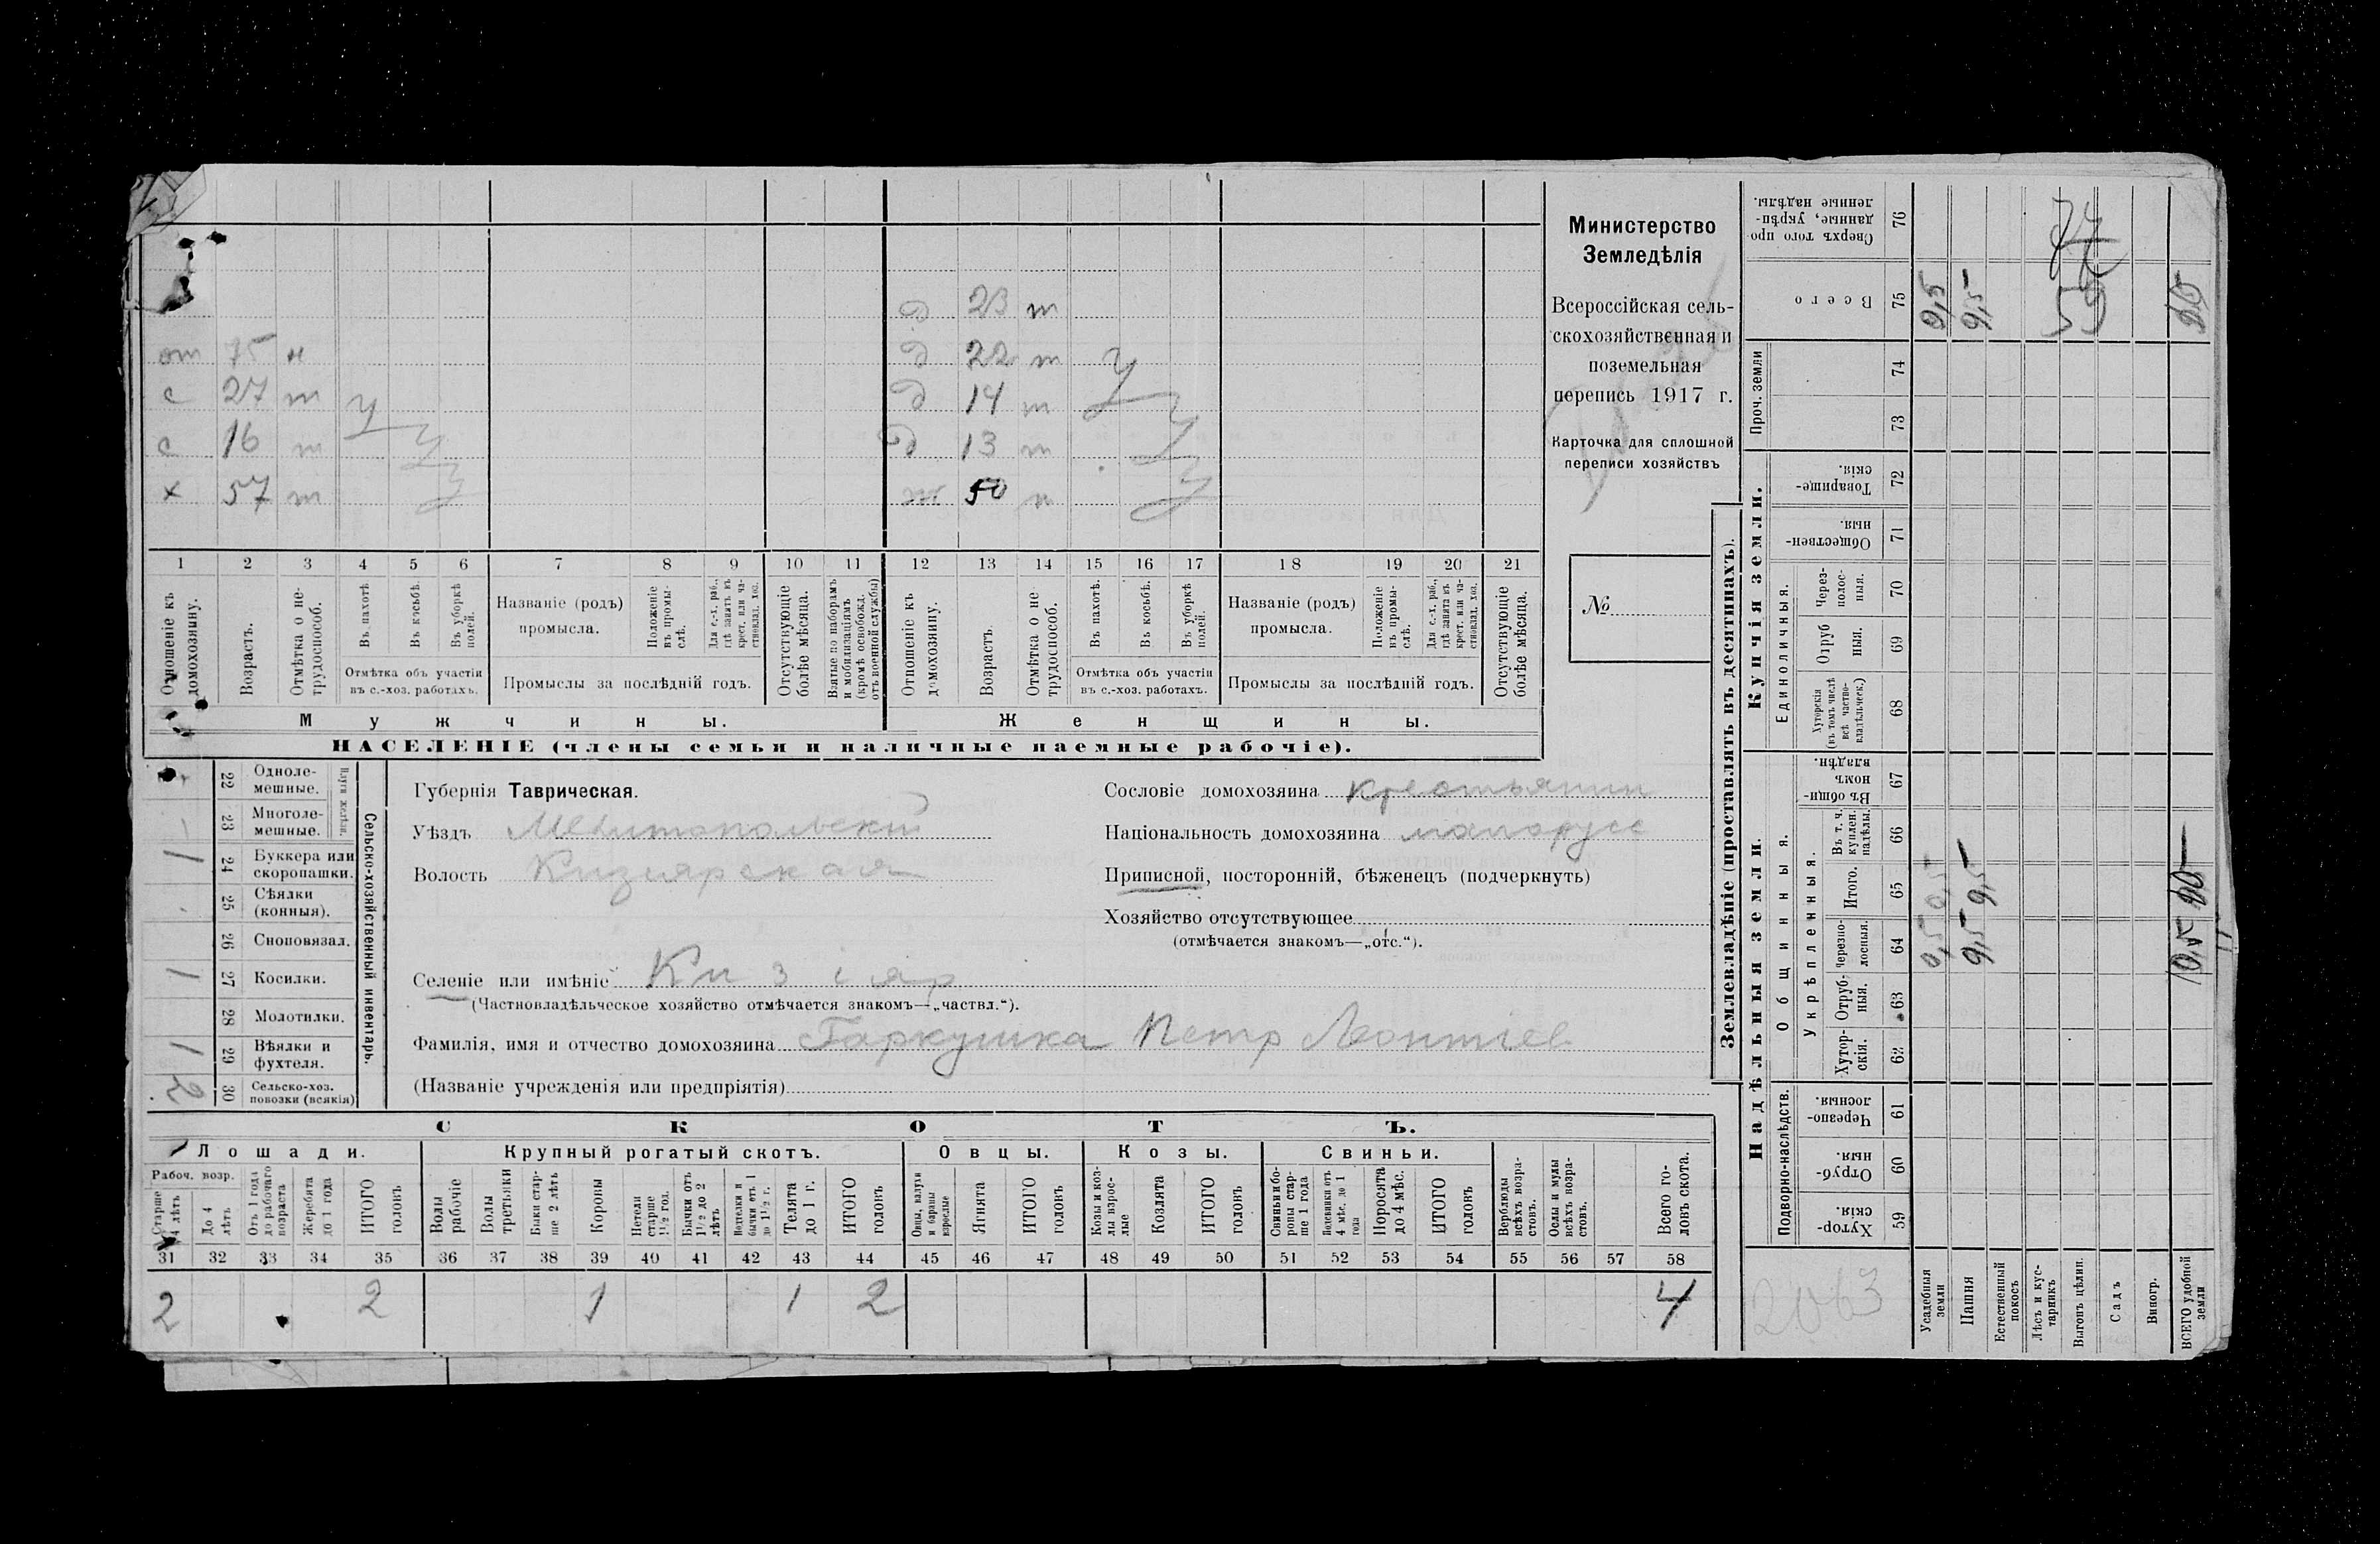 Министерство
Земледѣлія
Всероссійская сель-
скохозяйственная и
поземельная
перепись 1917 г.
Карточка для сплошной
переписи хозяйствъ
№
д 23 т
от 75 н
д 22 т
с 27 т у
д 14 т у
с 16 т у
д 13 т у
х 57 т у
50 н у
1 2 3 4 5 6 7 8 9 10 11 12 13 14 15 16 17 18 19 20 21
Отношеніе къ домохозяину.
Возрастъ.
Отмѣтка о не-трудоспособ.
Въ пахотѣ
Въ косьбѣ.
Въ уборкѣ полей.
Отмѣтка объ участіи
въ с.-хоз. работахъ.
Названіе (родъ)
промысла.
Положеніе въ промы-слѣ.
Для с.-х. раб., гдѣ занятъ въ крест. или ча-стновлад. хоз.
Промыслы за послѣдній годъ.
Отсутствующіе болѣе мѣсяца.
Взятые по наборамъ и мобилизаціямъ (кромѣ освобожд. отъ военной службы)
Отношеніе къ домохозяину.
Возрастъ.
Отмѣтка о не-трудоспособ.
Въ пахотѣ.
Въ косьбѣ.
Въ уборкѣ полей.
Отмѣтка объ участіи
въ с.-хоз. работахъ.
Названіе (родъ)
промысла.
Положеніе въ промы-слѣ.
Для с.-х. раб., гдѣ занята въ крест. или ча-стновлад. хоз.
Промыслы за послѣдній годъ.
Отсутствующіе болѣе мѣсяца.
Мужчины.
Женщины.
НАСЕЛЕНІЕ (члены семьи и наличные наемные рабочіе).
22 Одноле-мешные.
23 Многоле-мешные.
Плуги желѣзн.
1 24 Буккера или скоропашки.
25 Сѣялки (конныя).
26 Сноповязал.
1 27 Косилки.
28 Молотилки.
1 29 Вѣялки и фухтеля.
2 30 Сельско-хоз. повозки (всякія)
Сельско-хозяйственный инвентарь.
Губернія Таврическая.
Уѣздъ Мелитопольскій
Волость Кизиярская
Сословіе домохозяина крестьянин
Національность домохозяина малорусс
Приписной, посторонній, бѣженецъ (подчеркнуть)
Хозяйство отсутствующее
(отмѣчается знакомъ—„отс.“).
Селеніе или имѣніе Кизіяр
(Частновладѣльческое хозяйство отмѣчается знакомъ—„частвл.“).
Фамилія, имя и отчество домохозяина Гаркушка Петр Леонтіев
(Названіе учрежденія или предпріятія)
СКОТЪ.
Лошади.
Крупный рогатый скотъ.
Овцы.
Козы.
Свиньи.
Рабоч. возр.
Старше 4 лѣтъ
До 4 лѣтъ
Отъ 1 года до рабочаго возраста
Жеребята до 1 года
ИТОГО головъ
Волы рабочіе
Волы третьяки
Быки стар-ше 2 лѣтъ
Коровы
Нетели старше 1½ год.
Бычки отъ 1½ до 2 лѣтъ
Подтелки и бычки отъ 1 до 1½ г.
Телята до 1 г.
ИТОГО головъ
Овцы, валухи и бараны взрослые
Ягнята
ИТОГО головъ
Козы и коз-лы взрос-лые
Козлята
ИТОГО головъ
Свиньи и бо-ровы стар-ше 1 года
Подсвинки отъ 4 мѣс. до 1 года
Поросята до 4 мѣс.
ИТОГО головъ
Верблюды всѣхъ возра-стовъ.
Ослы и мулы всѣхъ возра-стовъ.
Всего го-ловъ скота.
31 32 33 34 35 36 37 38 39 40 41 42 43 44 45 46 47 48 49 50 51 52 53 54 55 56 57 58
2 2 1 1 2 4
Землевладѣніе (проставлять въ десятинахъ).
Надѣльныя земли.
Купчія земли.
Проч. земли
Подворно-наслѣдств.
Общинныя.
Укрѣпленныя.
Единоличныя.
Сверхъ того про-данные, укрѣп-ленные надѣлы. 76
Всего 75 9,5
74
73
Товарище-скія. 72
Обществен-ныя. 71
Через-полос-ныя. 70
Отруб-ныя. 69
Хуторскія (въ томъ числѣ всѣ частно-владѣльческ.) 68
Въ общи-номъ владѣн. 67
Въ т. ч. куплен. надѣлы. 66
Итого. 65 0,5 9,5
Черезпо-лосныя. 64 0,5 9,5
Отруб-ныя. 63
Хутор-скія. 62
Черезпо-лосныя. 61
Отруб-ныя. 60
Хутор-скія. 59
2063
Усадебныя земли
Пашня
Естественный покосъ
Лѣсъ и кус-тарникъ
Выгонъ цѣлин.
Садъ
Виногр.
ВСЕГО удобной земли